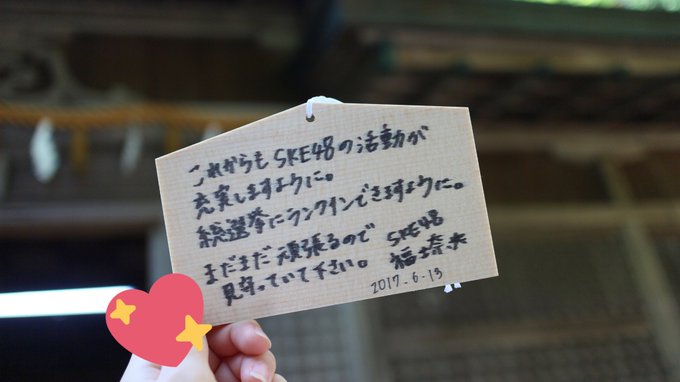 これからもSKE48の活動が
充実しますように。
総選挙にランクインできますように。
まだまだ頑張るので
見守っていて下さい。
SKE48
福士奈央
2017.6.13